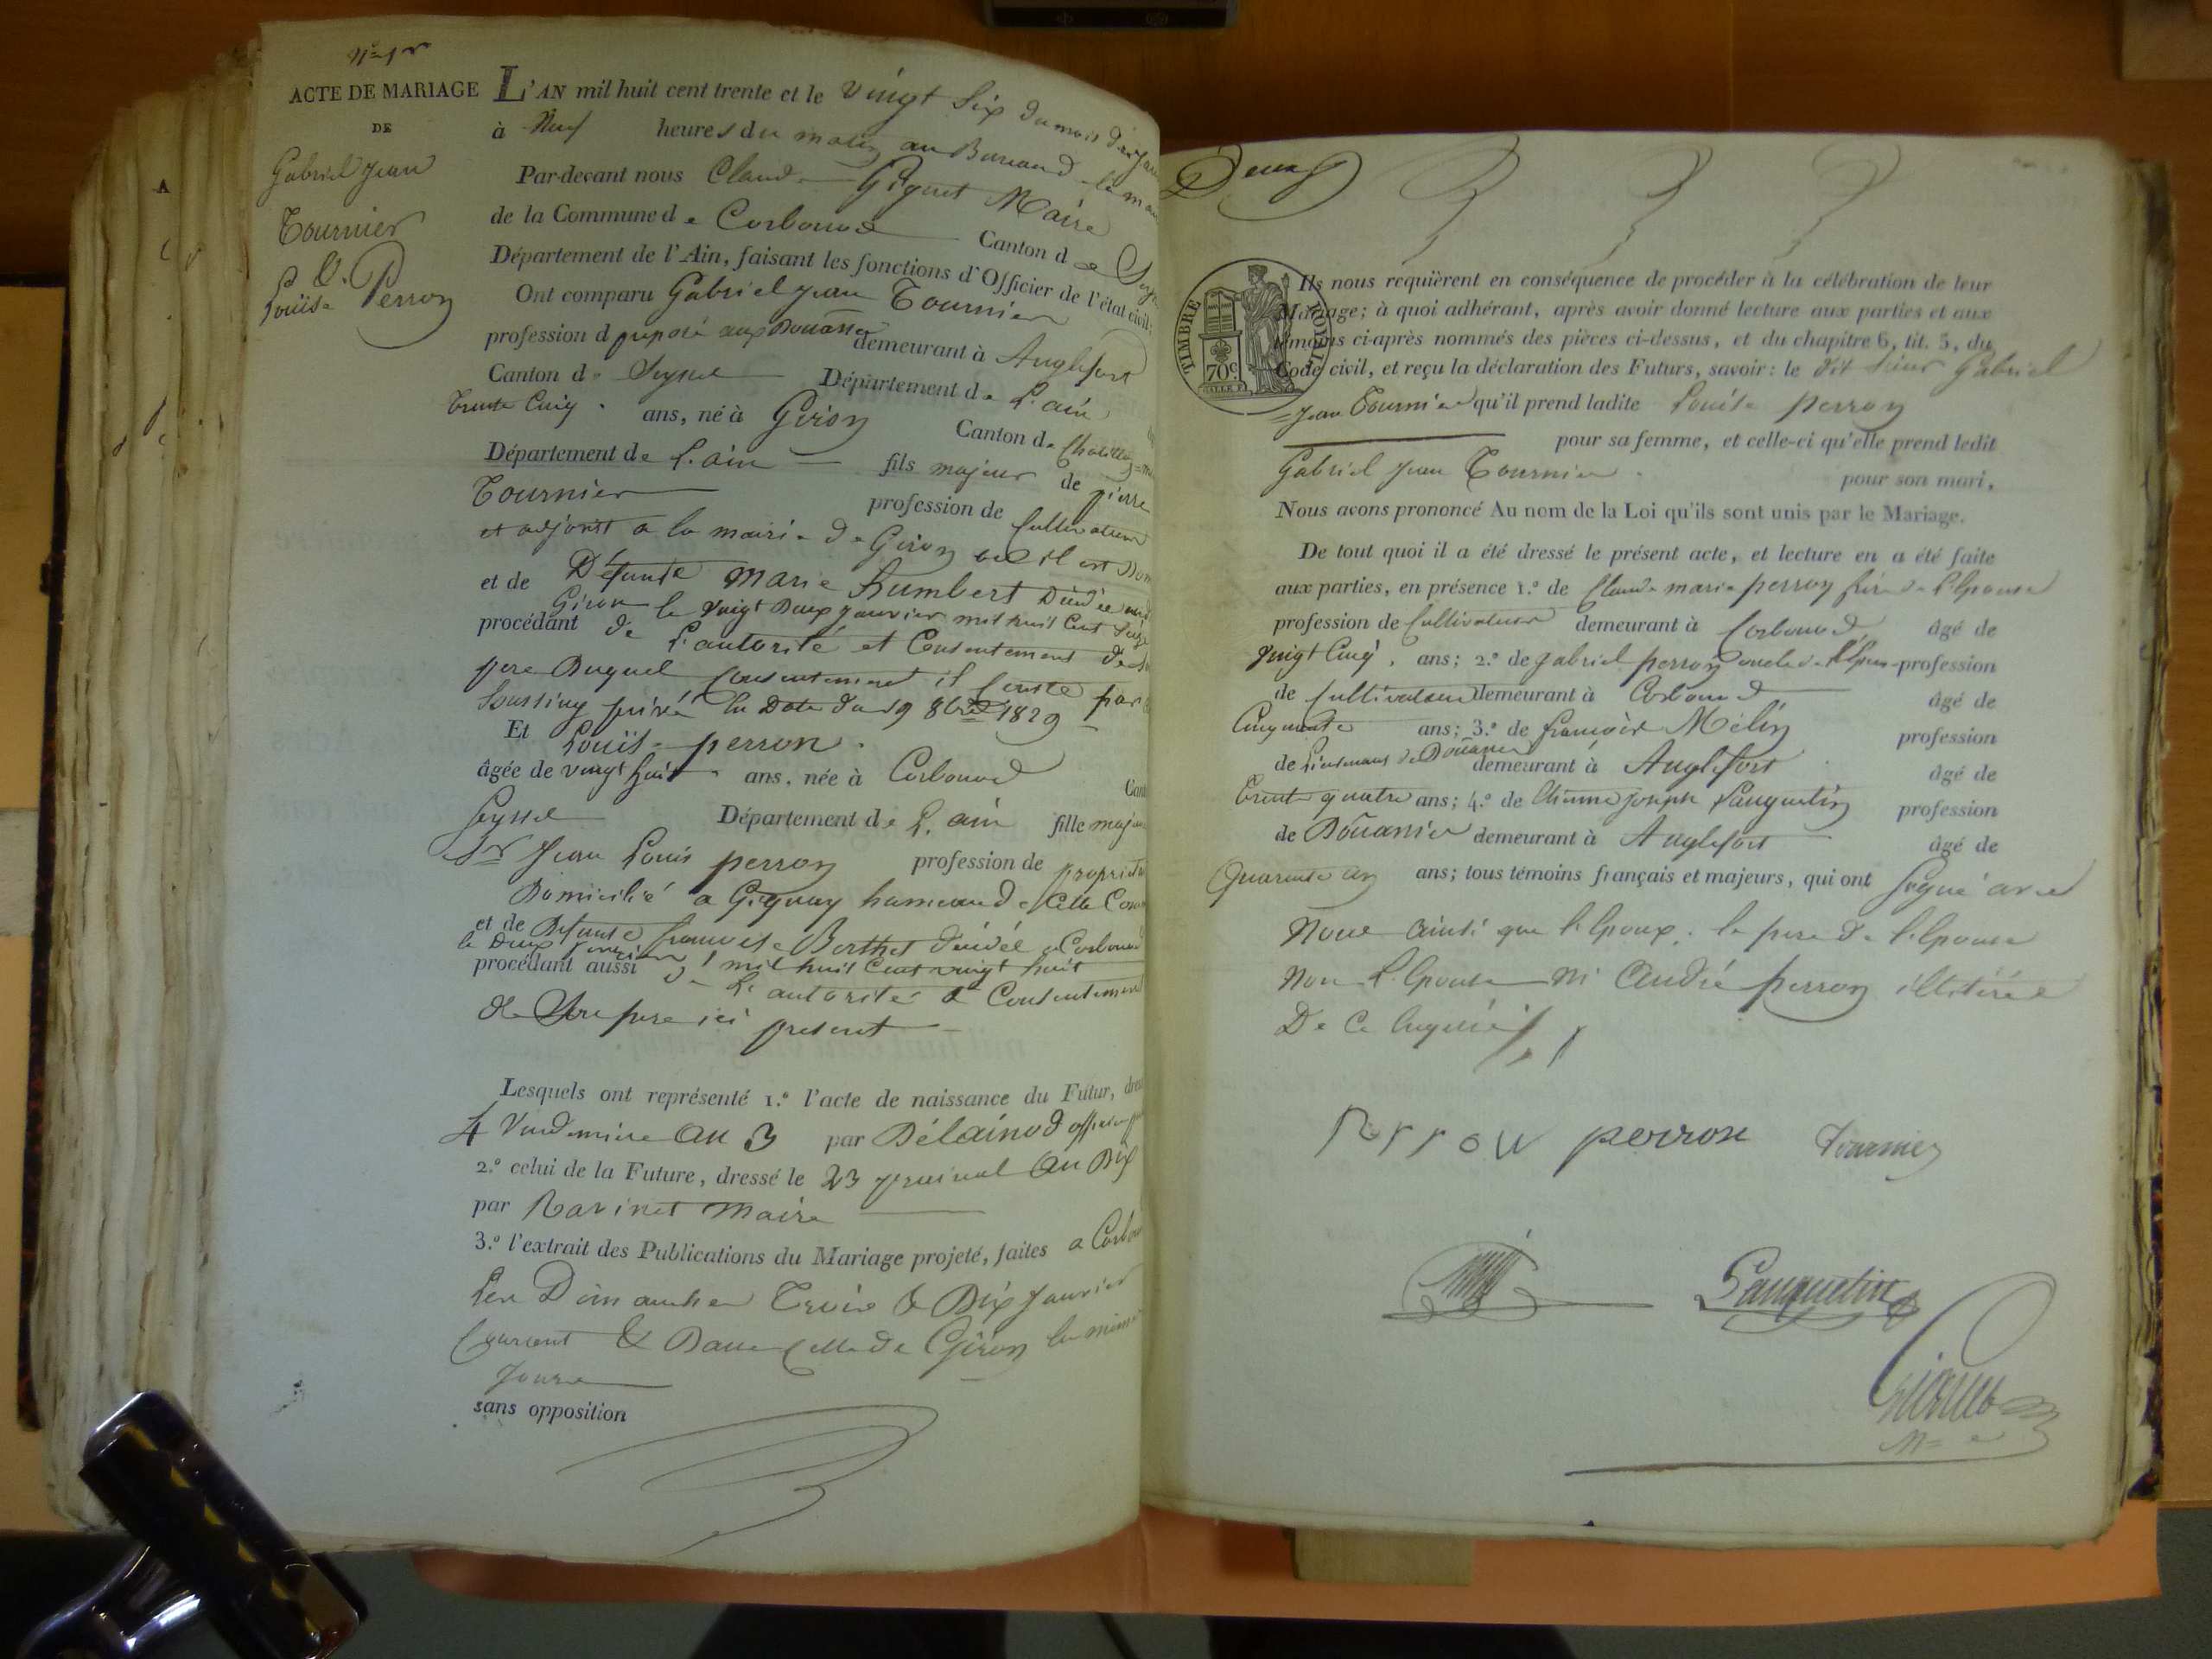 N.º 1er
ACTE DE MARIAGE
DE
Gabriel Jean
Tournier
&
Louise Perron
L'AN mil huit cent trente et le vingt six du mois de
à Neuf heures du matin au Bureau de la
Par-devant nous Claude Giguet Maire
de la Commune de Corbonod Canton de
Département de l'Ain, faisant les fonctions d'Officier de l'état civil,
Ont comparu Gabriel Jean Tournier
profession d préposé aux Douanes demeurant à Anglefort
Canton de Seyssel Département de L'ain
Trente Cinq ans, né à Giron Canton de
Département de L'ain fils majeur de pierre
Tournier profession de Cultivateur
et adjoint a la mairie de Giron où il est
et de Défunte Marie Humbert Décédée
Giron le Vingt Deux janvier mil huit Cent
procédant de L'autorité et Consentement de
pere Duquel Consentement il Conste par
Soussing privé en Date du 19 8bre 1829
Et Louise perron
âgée de vingt huit ans, née à Corbonod
Seyssel Département de L'ain fille
Sr Jean Louis perron profession de
Domicilié a Gignay hameau de Cette
et de Defunte francoise Berthet décédée a Corbonod
le Deux mil huit Cent vingt huit
procédant aussi de L'autorité & Consentement
de Son pere ici present
Lesquels ont représenté 1.º l'acte de naissance du Futur,
4 Vendemiere an 3 par Délainod
2.º celui de la Future, dressé le 23 germinal an Dix
par Ravinet Maire
3.º l'extrait des Publications du Mariage projeté, faites a
Les Dimanches Trois & Dix Janvier
Courant & Dans Celle de Giron les mêmes
Jours
sans opposition
Deux
TIMBRE ROYAL
70c
Ils nous requièrent en conséquence de procéder à la célébration de leur
Mariage; à quoi adhérant, après avoir donné lecture aux parties et aux
témoins ci-après nommés des pièces ci-dessus, et du chapitre 6, tit. 5, du
Code civil, et reçu la déclaration des Futurs, savoir: le dit Sieur Gabriel
Jean Tournier qu'il prend ladite Louise perron
pour sa femme, et celle-ci qu'elle prend ledit
Gabriel Jean Tournier pour son mari,
Nous avons prononcé Au nom de la Loi qu'ils sont unis par le Mariage.
De tout quoi il a été dressé le présent acte, et lecture en a été faite
aux parties, en présence 1.º de Claude marie perron frère de l'Epouse
profession de Cultivateur demeurant à Corbonod âgé de
vingt Cinq ans; 2.º de gabriel perron oncle de l'Epouse profession
de Cultivateur demeurant à Corbonod âgé de
Cinquante ans; 3.º de françois Mélin profession
de Lieutenant de Douane demeurant à Anglefort âgé de
Trente quatre ans; 4.º de Etienne Joseph Lanquetin profession
de Douanier demeurant à Anglefort âgé de
Quarante un ans; tous témoins français et majeurs, qui ont Signé avec
Nous ainsi que l'Epoux, le pere de l'Epouse
Non L'Epouse ni perron illitérés
De Ce Enquis
perron perron Tournier
Lanquetin
Giguet